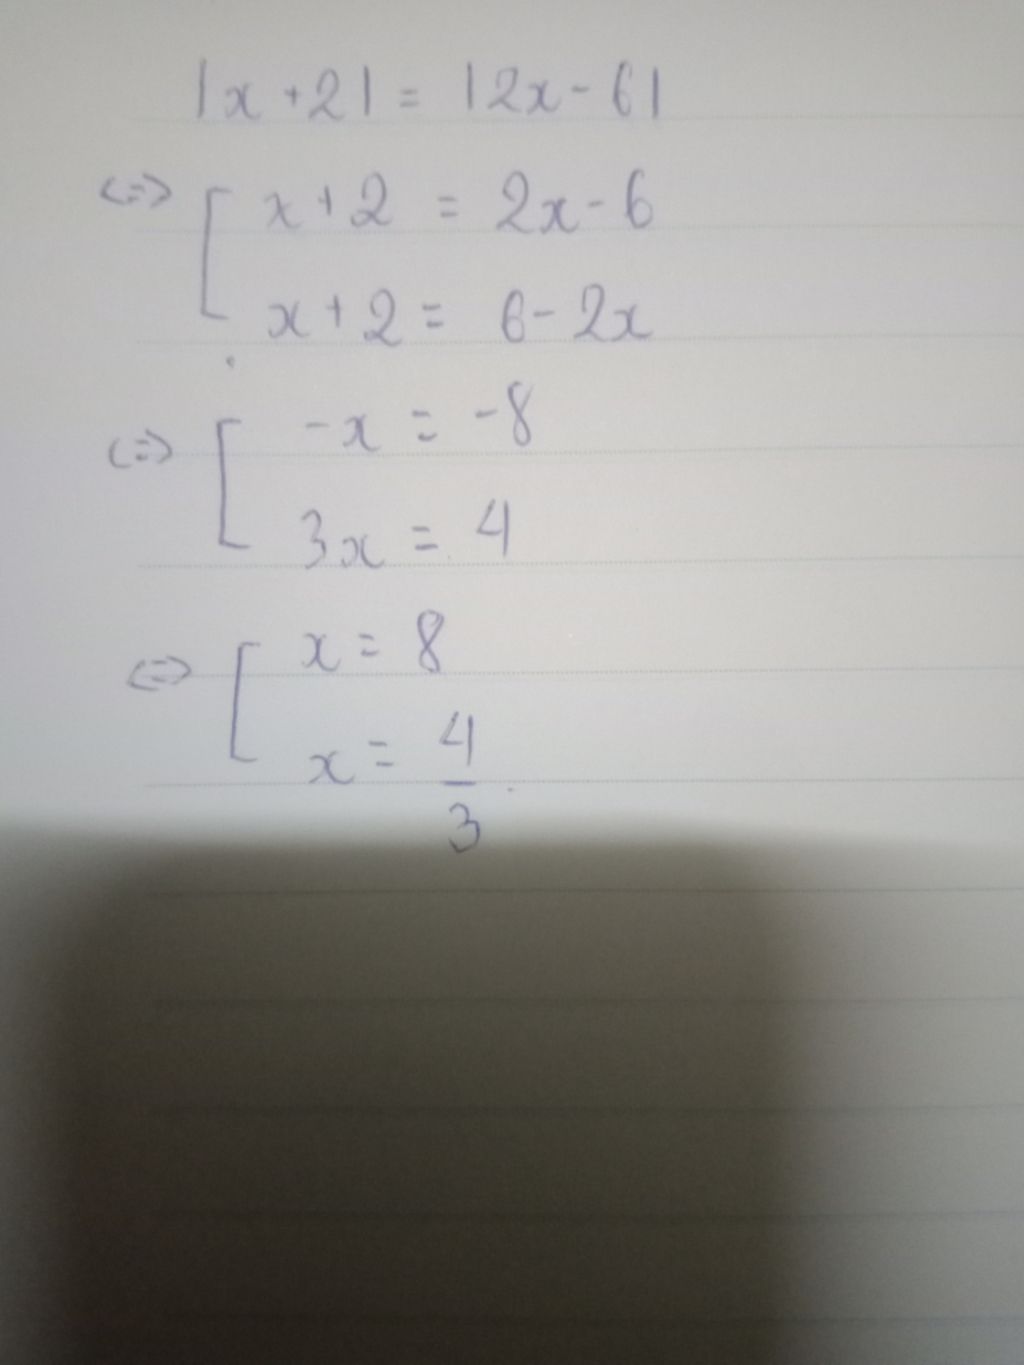 |x+2| = |2x-6|
<=> [ x+2 = 2x-6
x+2 = 6-2x
<=> [ -x = -8
3x = 4
<=> [ x = 8
x = 4/3